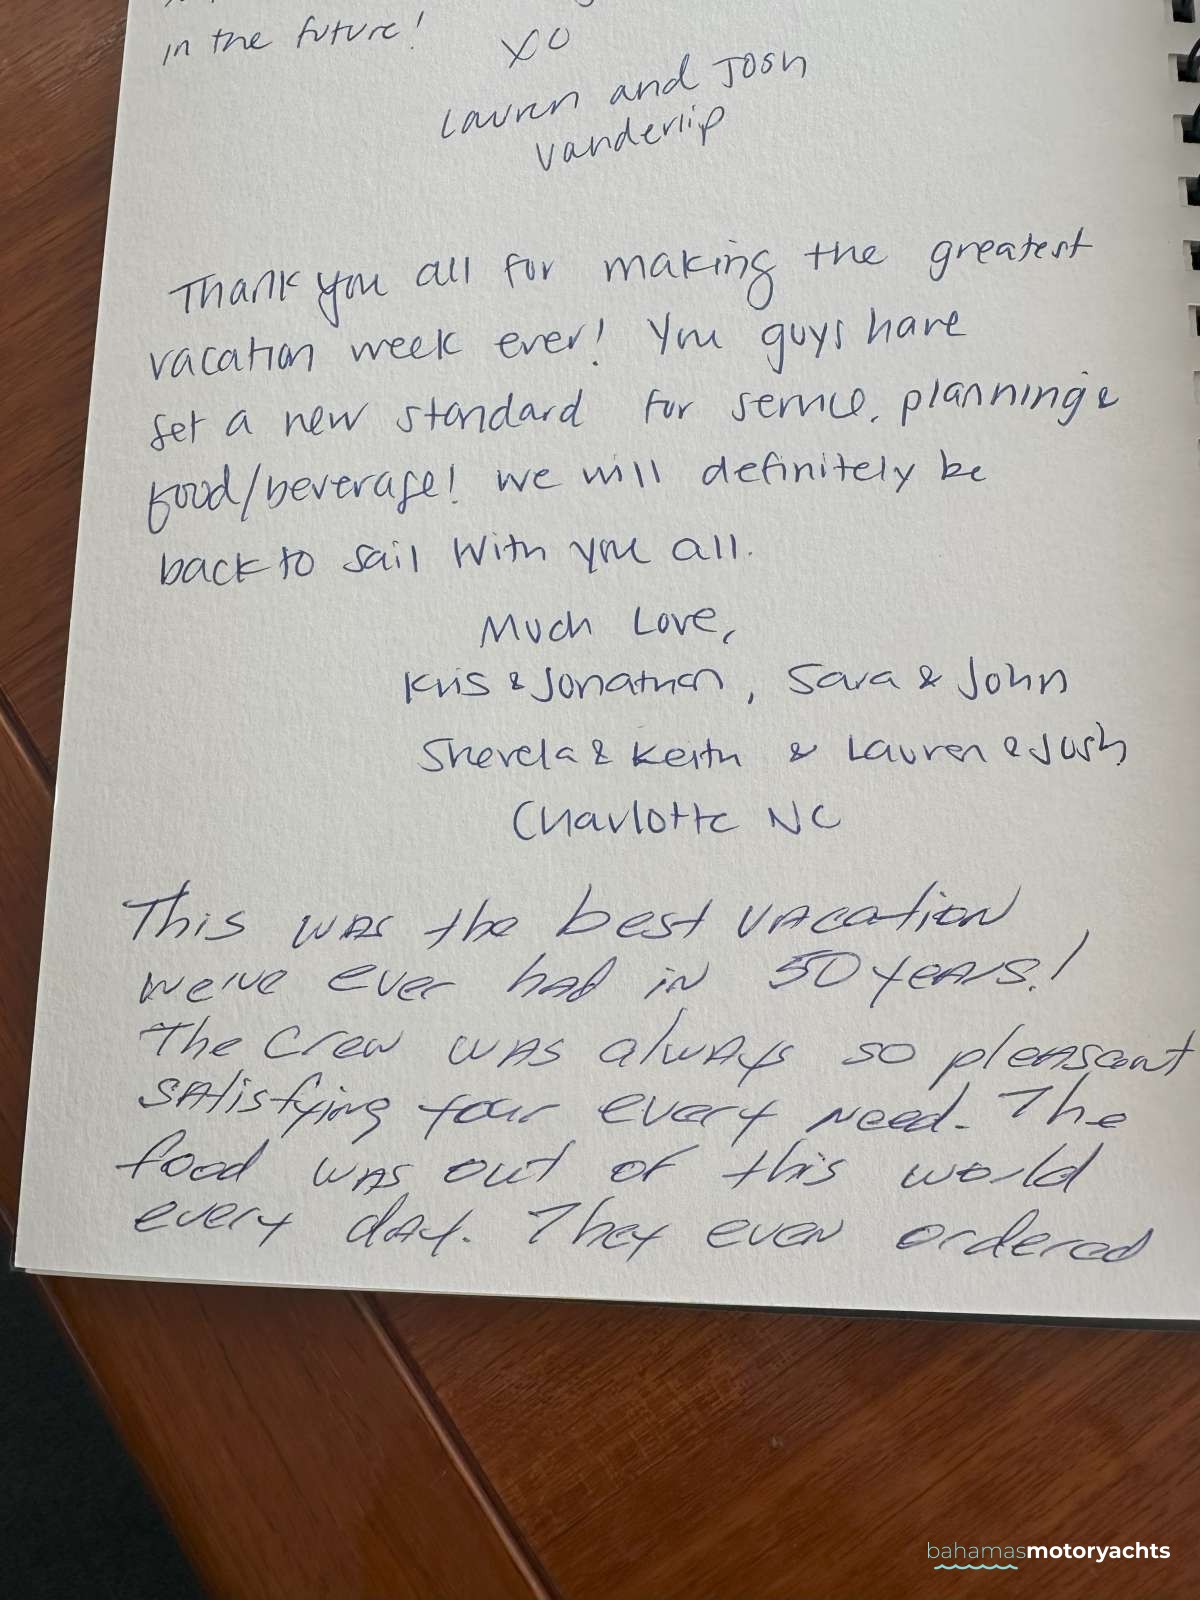 in the future!
XO
Lauren and Josh
Vanderlip
Thank you all for making the greatest
vacation week ever! You guys have
set a new standard for service, planning &
food/beverage! We will definitely be
back to sail with you all.
Much Love,
Kris & Jonathan, Sara & John
& Keith & Lauren & Josh
Charlotte NC
This was the best vacation
we've ever had in 50 years!
The Crew was always so pleasant
satisfying your every need. The
food was out of this world
every day. They even ordered
bahamasmotoryachts